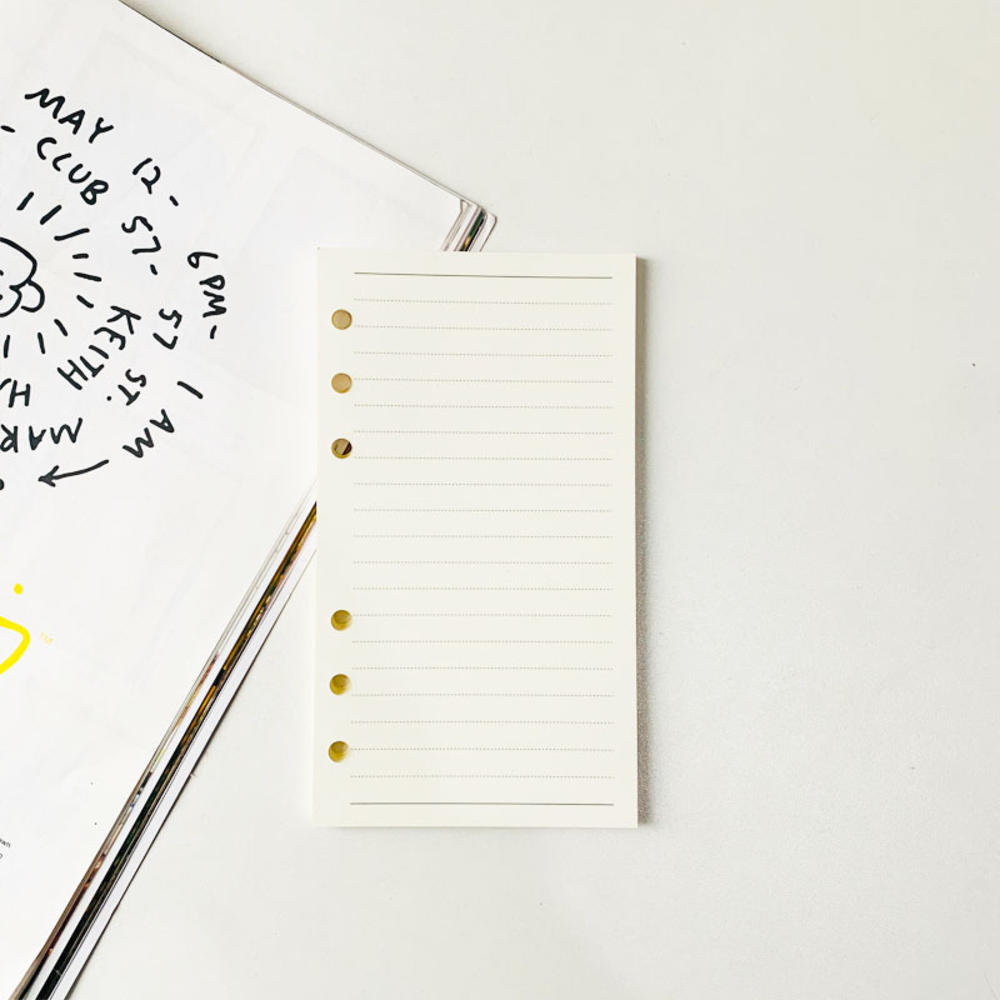 MAY 12- 6PM- 1 AM
- CLUB 57- 57 ST.
KEITH
TM